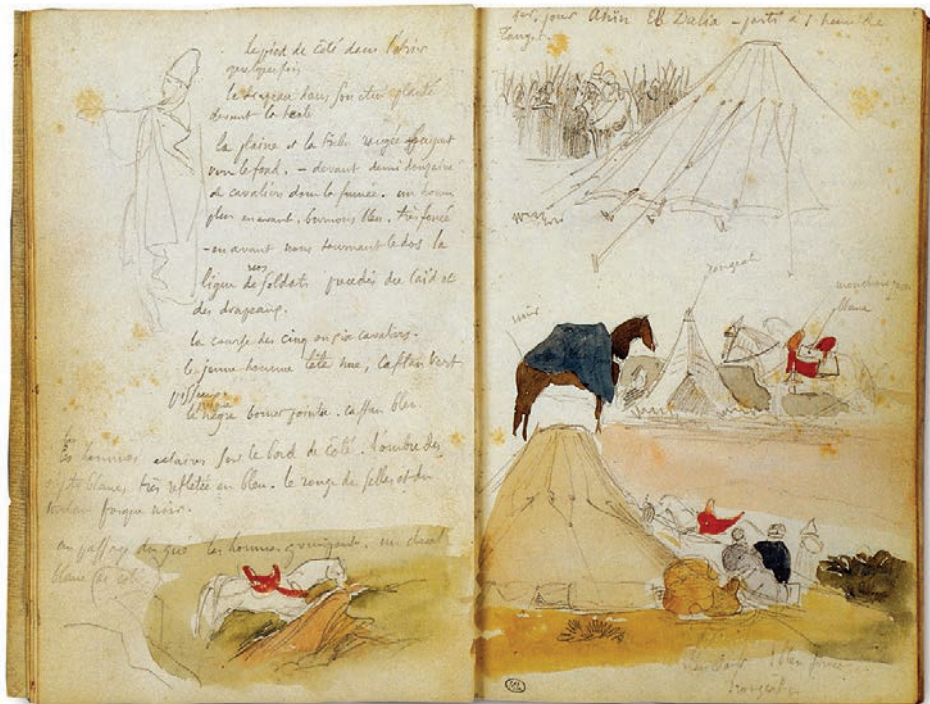 le pied de côté dans l'étrier
quelquefois
le drapeau dans son étui planté
devant la tente
la plaine et la tribu rangée fuyant
vers le fond. – devant demi douzaine
de cavaliers dans la fumée. un homme
plus en avant, bernous bleu. très foncé
– en avant nous tournant le dos la
ligne de nos soldats précédés du Caïd et
des drapeaux.
la course des cinq ou six cavaliers.
le jeune homme tête nue, caftan vert
le nègre bonnet pointu. caftan bleu.
les hommes éclairés sur le bord de côté. l'ombre des
objets blancs très reflétée en bleu. le rouge des selles et du
turban presque noir.
au passage du gué les hommes grimpant. un cheval
blanc de côté
1er. jour Ahïn El Dalia – parti à 1 heure de
Tanger.
rougeâtre
noir
mouchoir
blanc
bleu foncé
rougeâtre